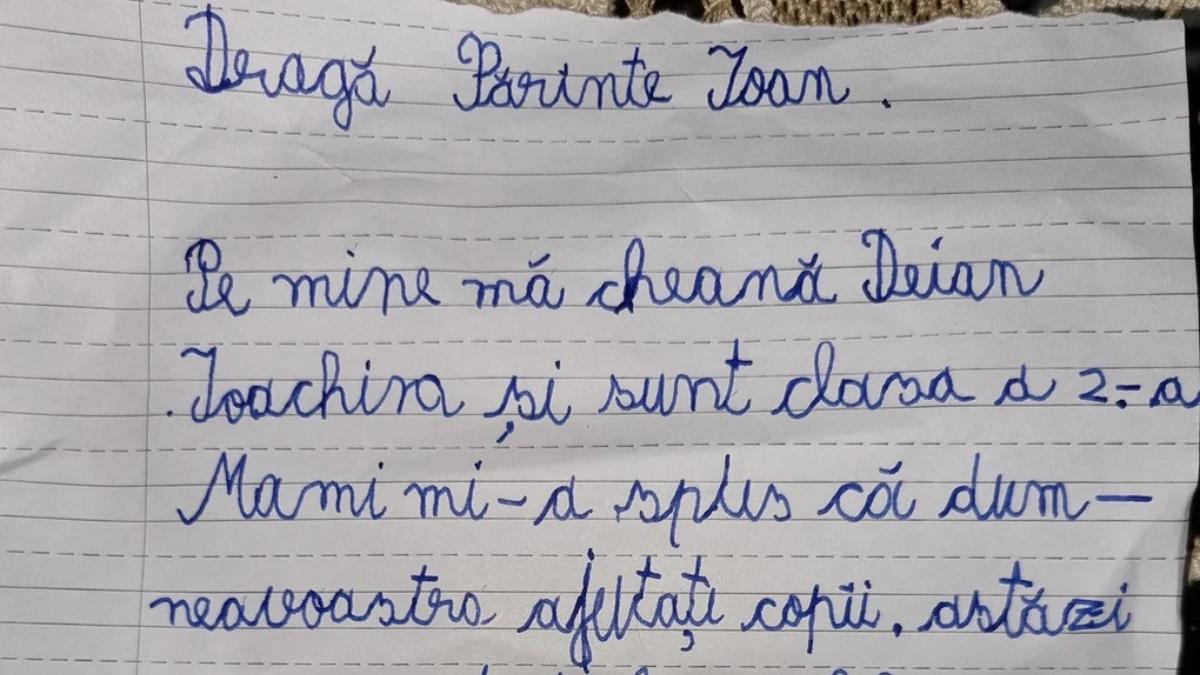 Dragă Părinte Ioan.
Pe mine mă cheană Deian
Ioachim și sunt clasa a 2-a
Mami mi-a splus că dum-
neavoastra ajutați copii. astăzi